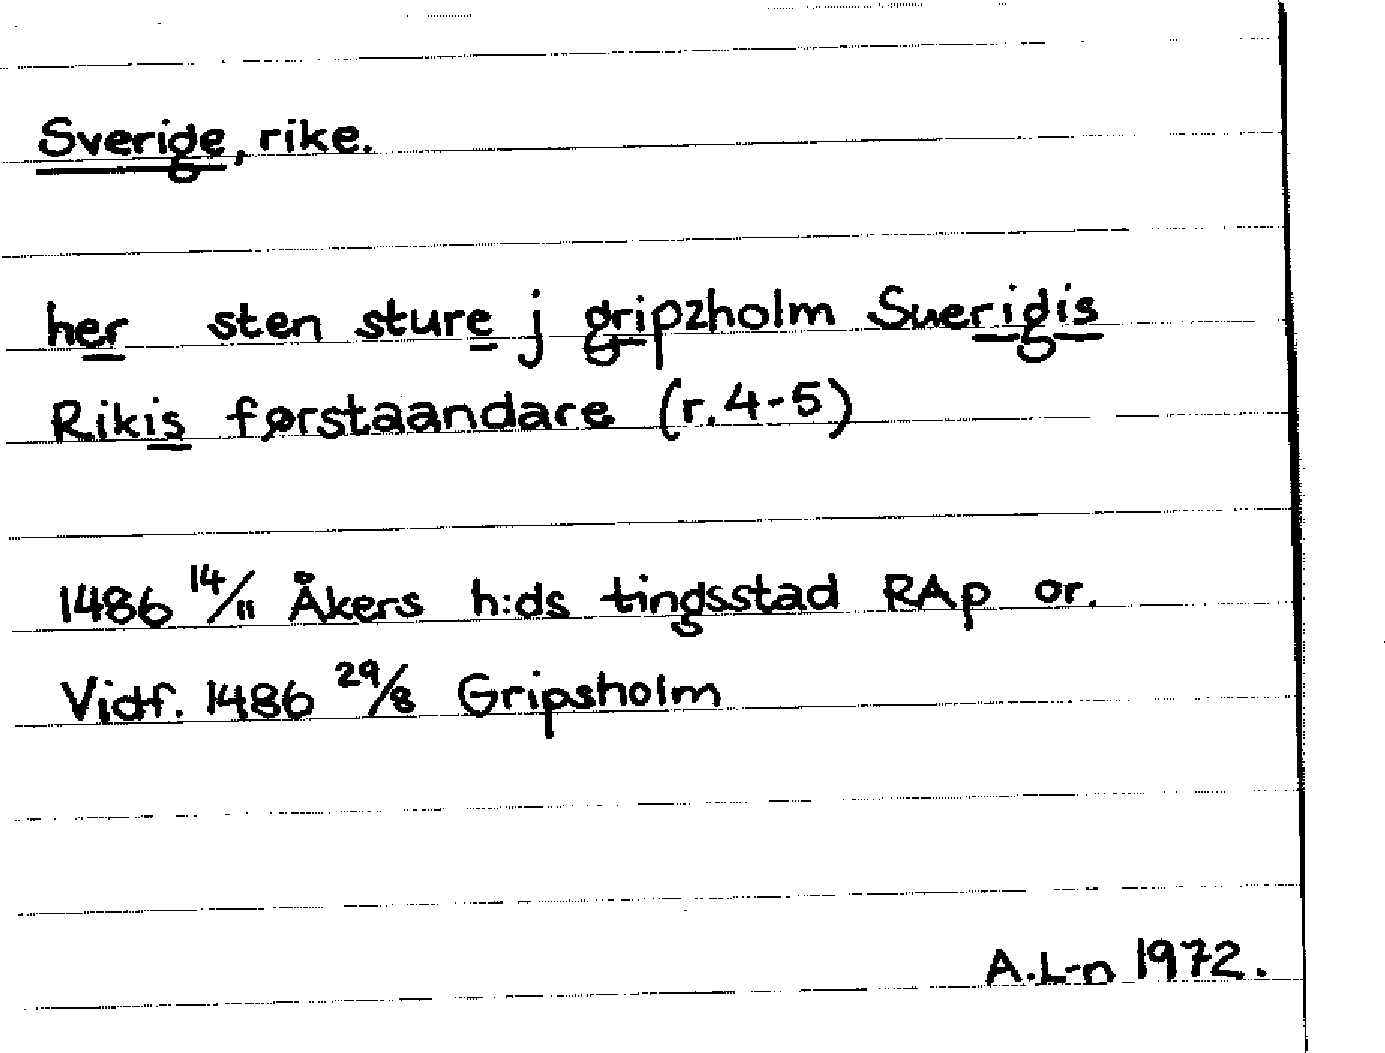 Sverige, rike.
her sten sture j gripzholm Suerigis
Rikis førstaandare (r. 4-5)
1486 14/11 Åkers h:ds tingsstad RAp or.
Vidf. 1486 29/8 Gripsholm
A.L-n 1972.